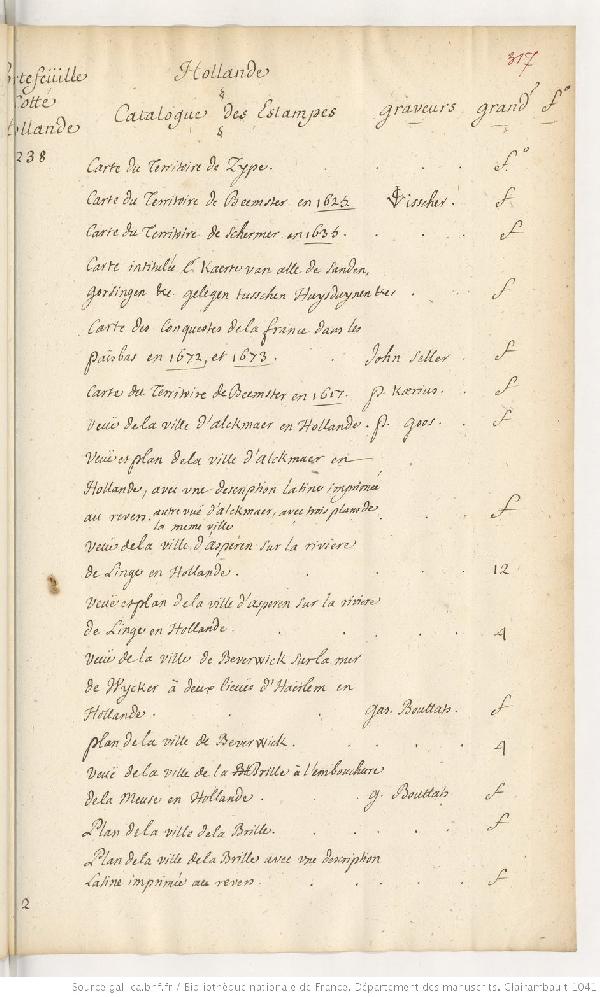 317
Hollande
ortefeüille
Cotté
ollande
238
Catalogue des Estampes graveurs grandr fo
Carte du Territoire de Zype. fo
Carte du Territoire de Beemster en 1625 Visscher. f.
Carte du Territoire de Schermer en 1635. f
Carte intitulée C. Kaerte van alle de Sanden,
Gorsingen &c. gelegen tusschen Huysduynen &c. f
Carte des Conquestes de la france dans les
païsbas en 1672, et 1673. John Seller. f
Carte du Territoire de Beemster en 1617. p. Kærius. f
Veuë de la ville d'alckmaer en Hollande. p. goos. f
Veuë et plan de la ville d'alckmaer en
Hollande, avec vne description latine imprimée
au revers. autre vuë d'alckmaer, avec trois plans de f
la meme ville
Veuë de la ville d'asperen sur la riviere
de Linge en Hollande. 12
Veuë et plan de la ville d'asperen sur la riviere
de Linge en Hollande. 4
Veuë de la ville de Beverwick sur la mer
de Wycker à deux lieues d'Haerlem en
Hollande. gas. Bouttats. f
plan de la ville de Beverwick. 4
Veuë de la ville de la Brille à l'embouchure
de la Meuse en Hollande. g. Bouttats f
Plan de la ville de la Brille. f
Plan de la ville de la Brille avec vne description
latine imprimée au revers. f
2
Source gallica.bnf.fr / Bibliothèque nationale de France. Département des manuscrits. Clairambault 1041